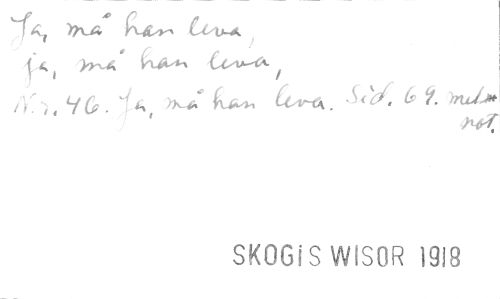 Ja, må han leva,
ja, må han leva,
N:r. 46. Ja, må han leva. Sid. 69. mel.
not.
SKOGIS WISOR 1918